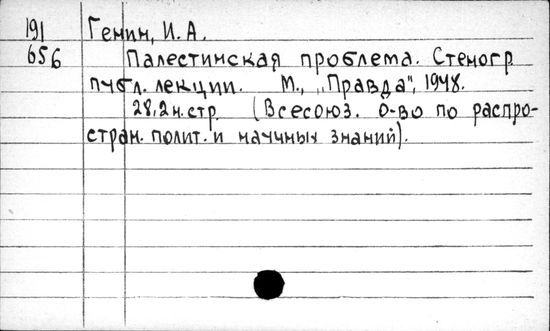 191 Генин, И. А.
656 Палестинская проблема. Стеногр
публ. лекции. М., „Правда", 1948.
28,2н.стр. (Всесоюз. о-во по распро-
стран. полит. и научных знаний).